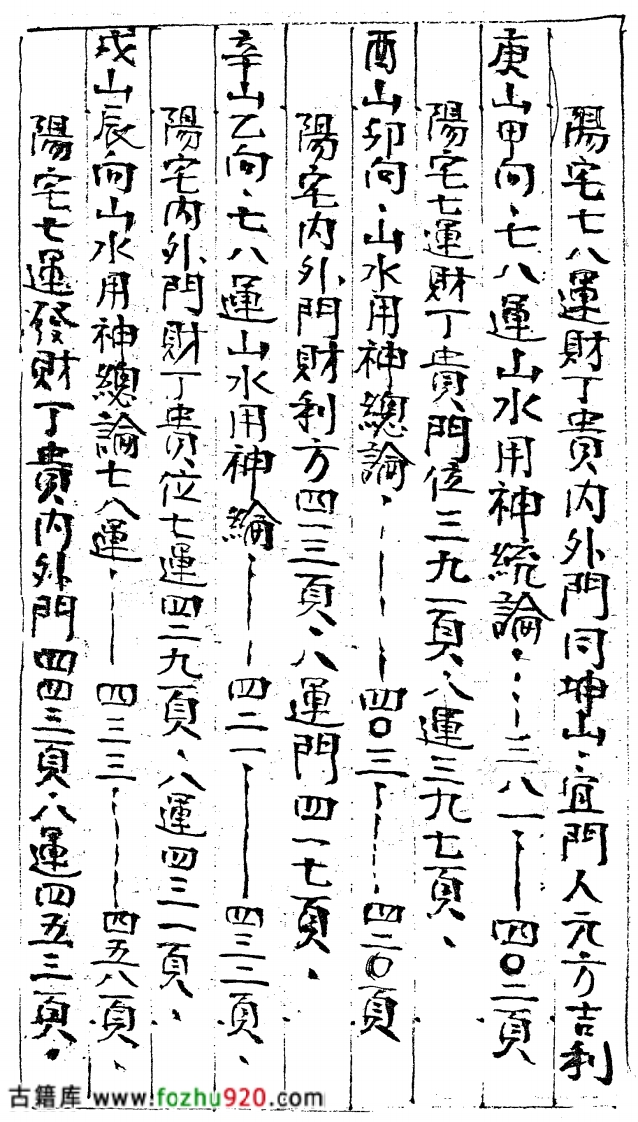 陽宅七八運財丁貴內外門同坤山、宜門人元方吉利
庚山甲向、七八運山水用神統論、三八一——四〇二頁
陽宅七運財丁貴門位三九一頁、八運三九七頁、
酉山卯向、山水用神總論、四〇三——四二〇頁
陽宅內外門財利方四一三頁、八運門四一七頁、
辛山乙向、七八運山水用神論、四二一——四三二頁、
陽宅內外門財丁貴位七運四二九頁、八運四三一頁、
戌山辰向山水用神總論七八運、四三三——四五八頁、
陽宅七運發財丁貴內外門四四三頁、八運四五三頁、
古籍库 www.fozhu920.com